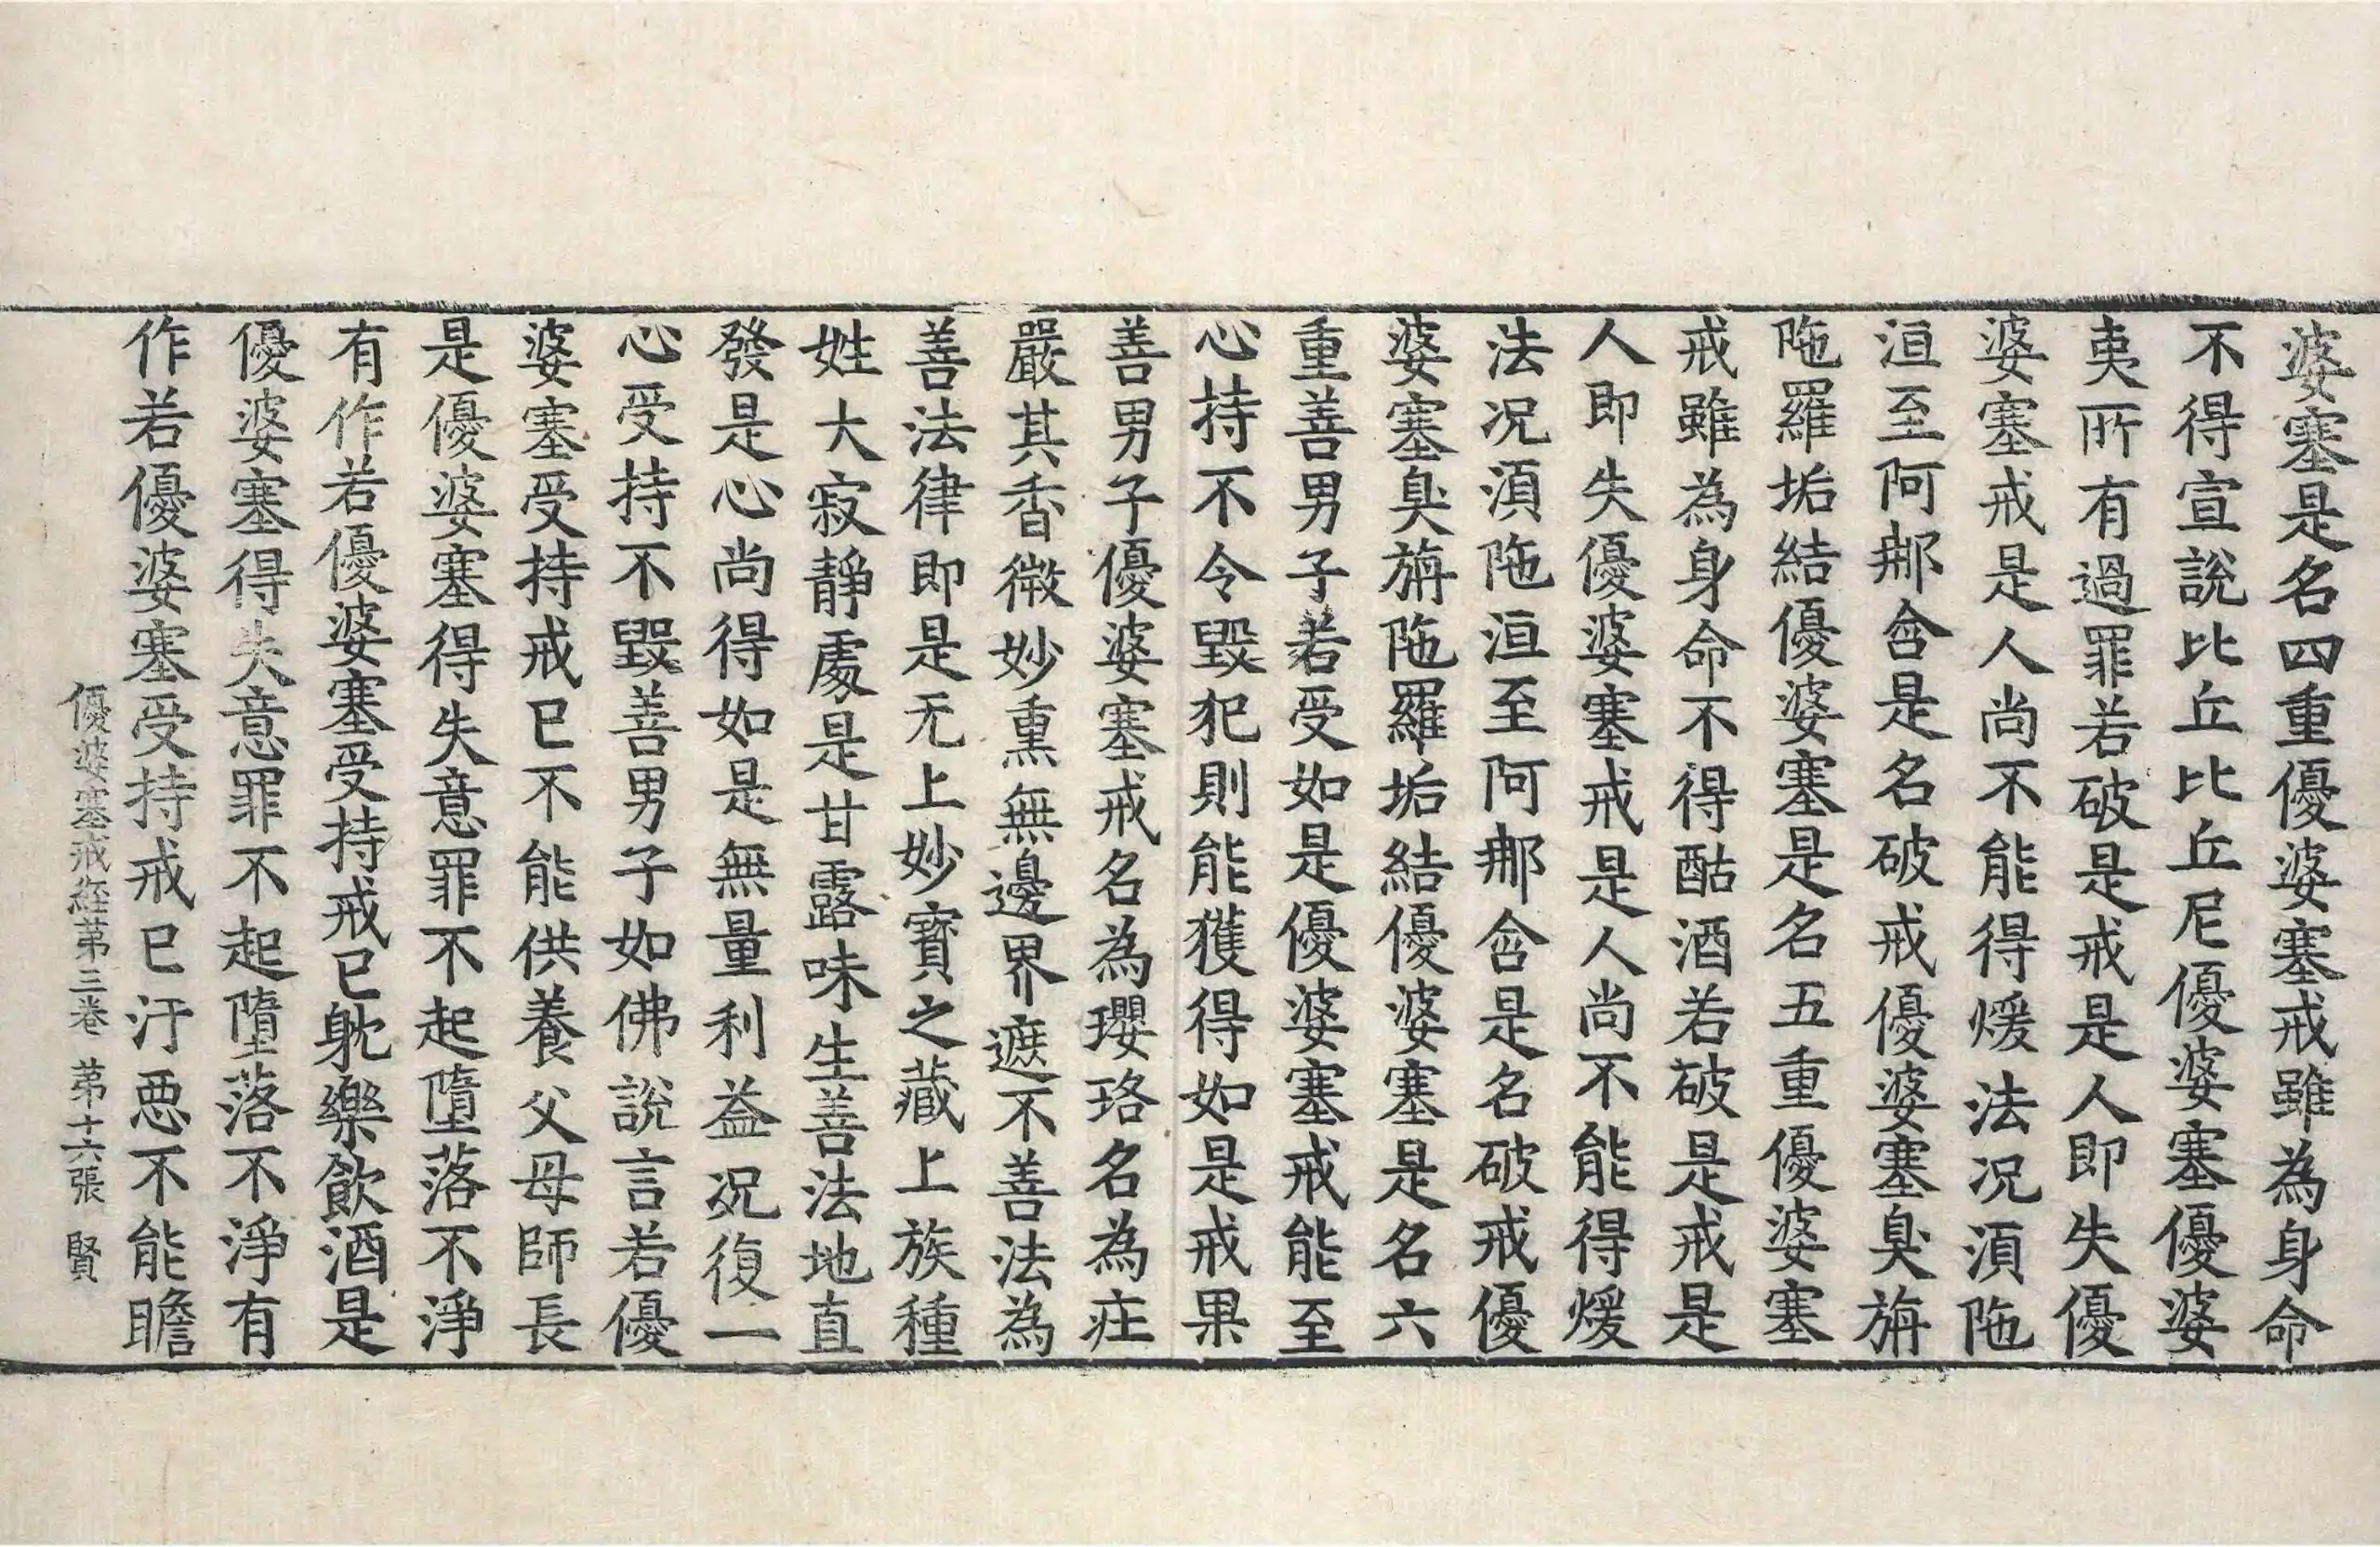 婆塞是名四重優婆塞戒雖為身命
不得宣說比丘比丘尼優婆塞優婆
夷所有過罪若破是戒是人即失優
婆塞戒是人尚不能得煖法況湏陁
洹至阿那含是名破戒優婆塞臭旃
陁羅垢結優婆塞是名五重優婆塞
戒雖為身命不得酤酒若破是戒是
人即失優婆塞戒是人尚不能得煖
法況湏陁洹至阿那含是名破戒優
婆塞臭旃陁羅垢結優婆塞是名六
重善男子若受如是優婆塞戒能至
心持不令毀犯則能獲得如是戒果
善男子優婆塞戒名為瓔珞名為疘
嚴其香微妙熏無邊界遮不善法為
善法律即是无上妙寶之藏上族種
姓大寂靜處是甘露味生善法地直
發是心尚得如是無量利益況復一
心受持不毀善男子如佛說言若優
婆塞受持戒已不能供養父母師長
是優婆塞得失意罪不起墮落不淨
有作若優婆塞受持戒已躭樂飲酒是
優婆塞得失意罪不起墮落不淨有
作若優婆塞受持戒已汙惡不能瞻
優婆塞戒經第三卷 第十六張 賢